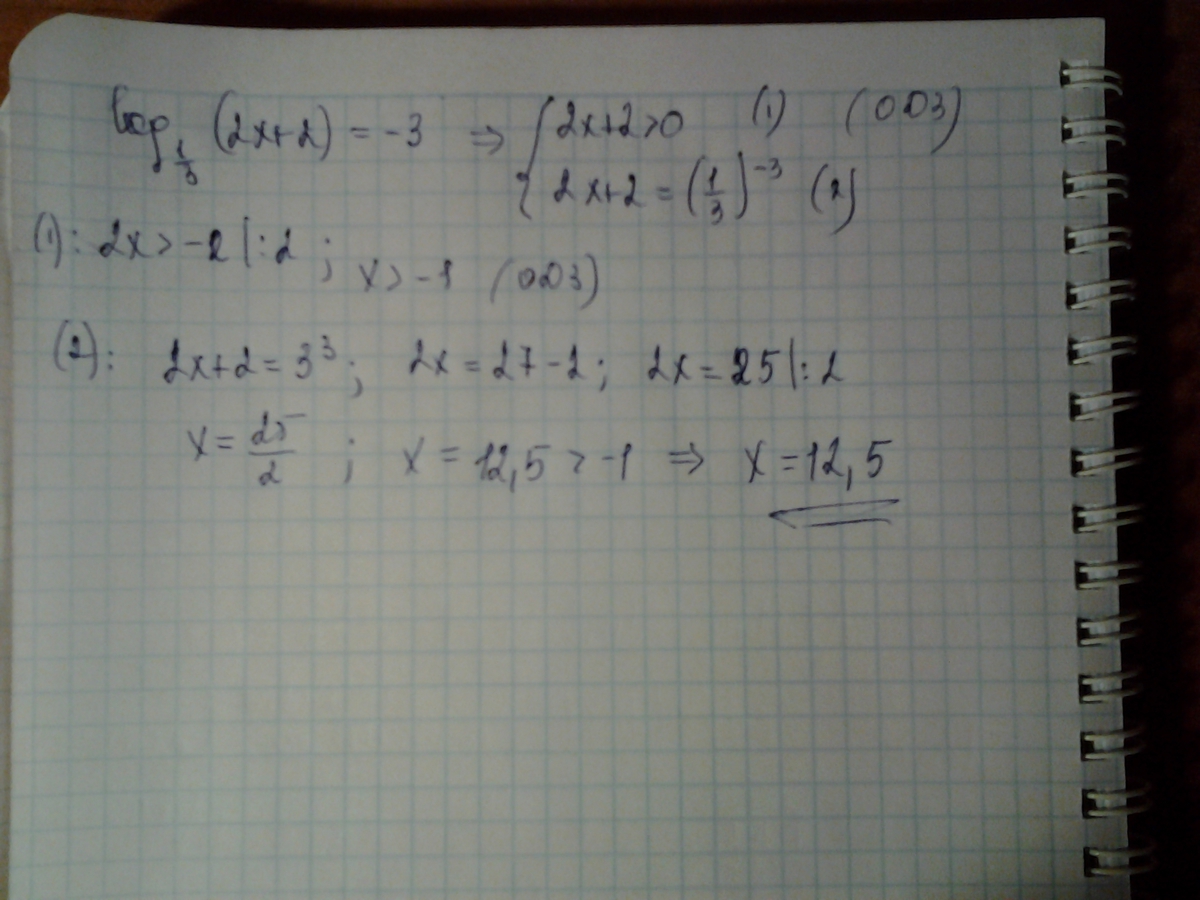 log_{1/3} (2x+2) = -3 ⇒ { 2x+2>0 (1) (ОДЗ)
2x+2 = (1/3)^{-3} (2)
(1): 2x > -2 |:2 ; x > -1 (ОДЗ)
(2): 2x+2 = 3^3 ; 2x = 27-2 ; 2x = 25 |:2
x = 25/2 ; x = 12,5 > -1 ⇒ x = 12,5